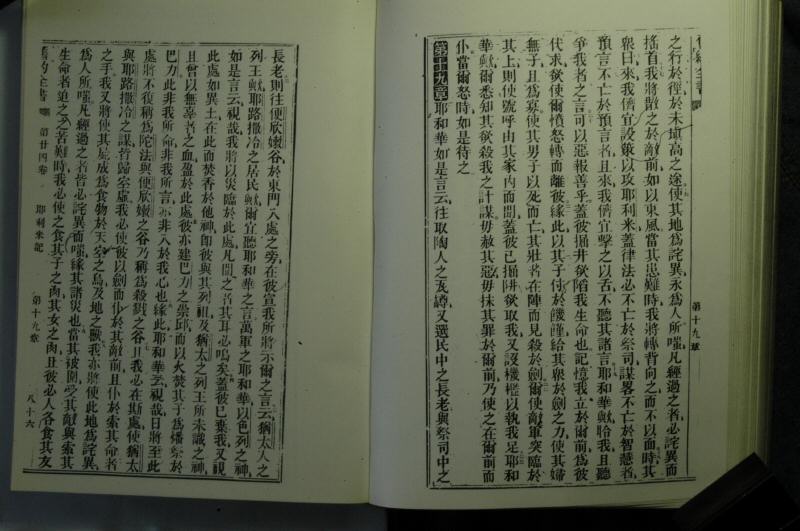 舊約全書
之行於徑於未填高之途使其地爲詫異永爲人所嗤凡經過之者必詫異而
搖首我將散之於敵前如以東風當其患難時我將轉背向之而不以面時其
衆曰來我儕宜設策以攻耶利米蓋律法必不亡於祭司謀畧不亡於智慧者
預言不亡於預言者且來我儕宜擊之以舌不聽其諸言耶和華歟聆我且聽
爭我者之言可以惡報善乎蓋彼掘井欲陷我生命也記憶我立於爾前爲彼
代求欲使爾憤怒轉而離彼緣此以其子付於饑謹給其衆於劍之力使其婦
無子且爲寡使其男子以死而亡其壯者在陣而見殺於劍爾使敵軍突臨於
其上則使號呼由其家內而聞蓋彼已掘阱欲取我又設機檻以執我足耶和
華歟爾悉知其欲殺我之計謀毋赦其惡毋抹其罪於爾前乃使之在爾前而
仆當爾怒時如是待之
第十九章耶和華如是言云往取陶人之瓦罇又選民中之長老與祭司中之
第十九章
長老則往便欣嫩谷於東門入處之旁在彼宣我所將示爾之言云猶太人之
列王歟耶路撒冷之居民歟爾宜聽耶和華之言萬軍之耶和華以色列之神
如是言云視哉我將以災臨於此處凡聞之者其耳必鳴矣蓋彼已棄我又視
此處如異土在此而焚香於他神卽彼與其列祖及猶太之列王所未識之神
且曾以無辜者之血盈於此處彼亦建巴力之崇邱而以火焚其子爲燔祭於
巴力此非我所命非我所言亦非入於我心也緣此耶和華云視哉日將至此
處將不復稱爲陀法與便欣嫩之谷乃稱爲殺戮之谷且我必在斯處使猶太
與耶路撒冷之謀皆歸空虛我必使彼以劍而仆於其敵前且仆於索其命者
之手我又將使其屍成爲食物於天空之鳥及地之獸我亦將使此地爲詫異
爲人所嗤凡經過之者皆必詫異而嗤緣其諸災也當其被圍受其敵與索其
生命者迫之之苦難時我必使之食其子之肉其女之肉且彼必人各食其友
舊約全書
第廿四卷
耶利米記
第十九章
八十六